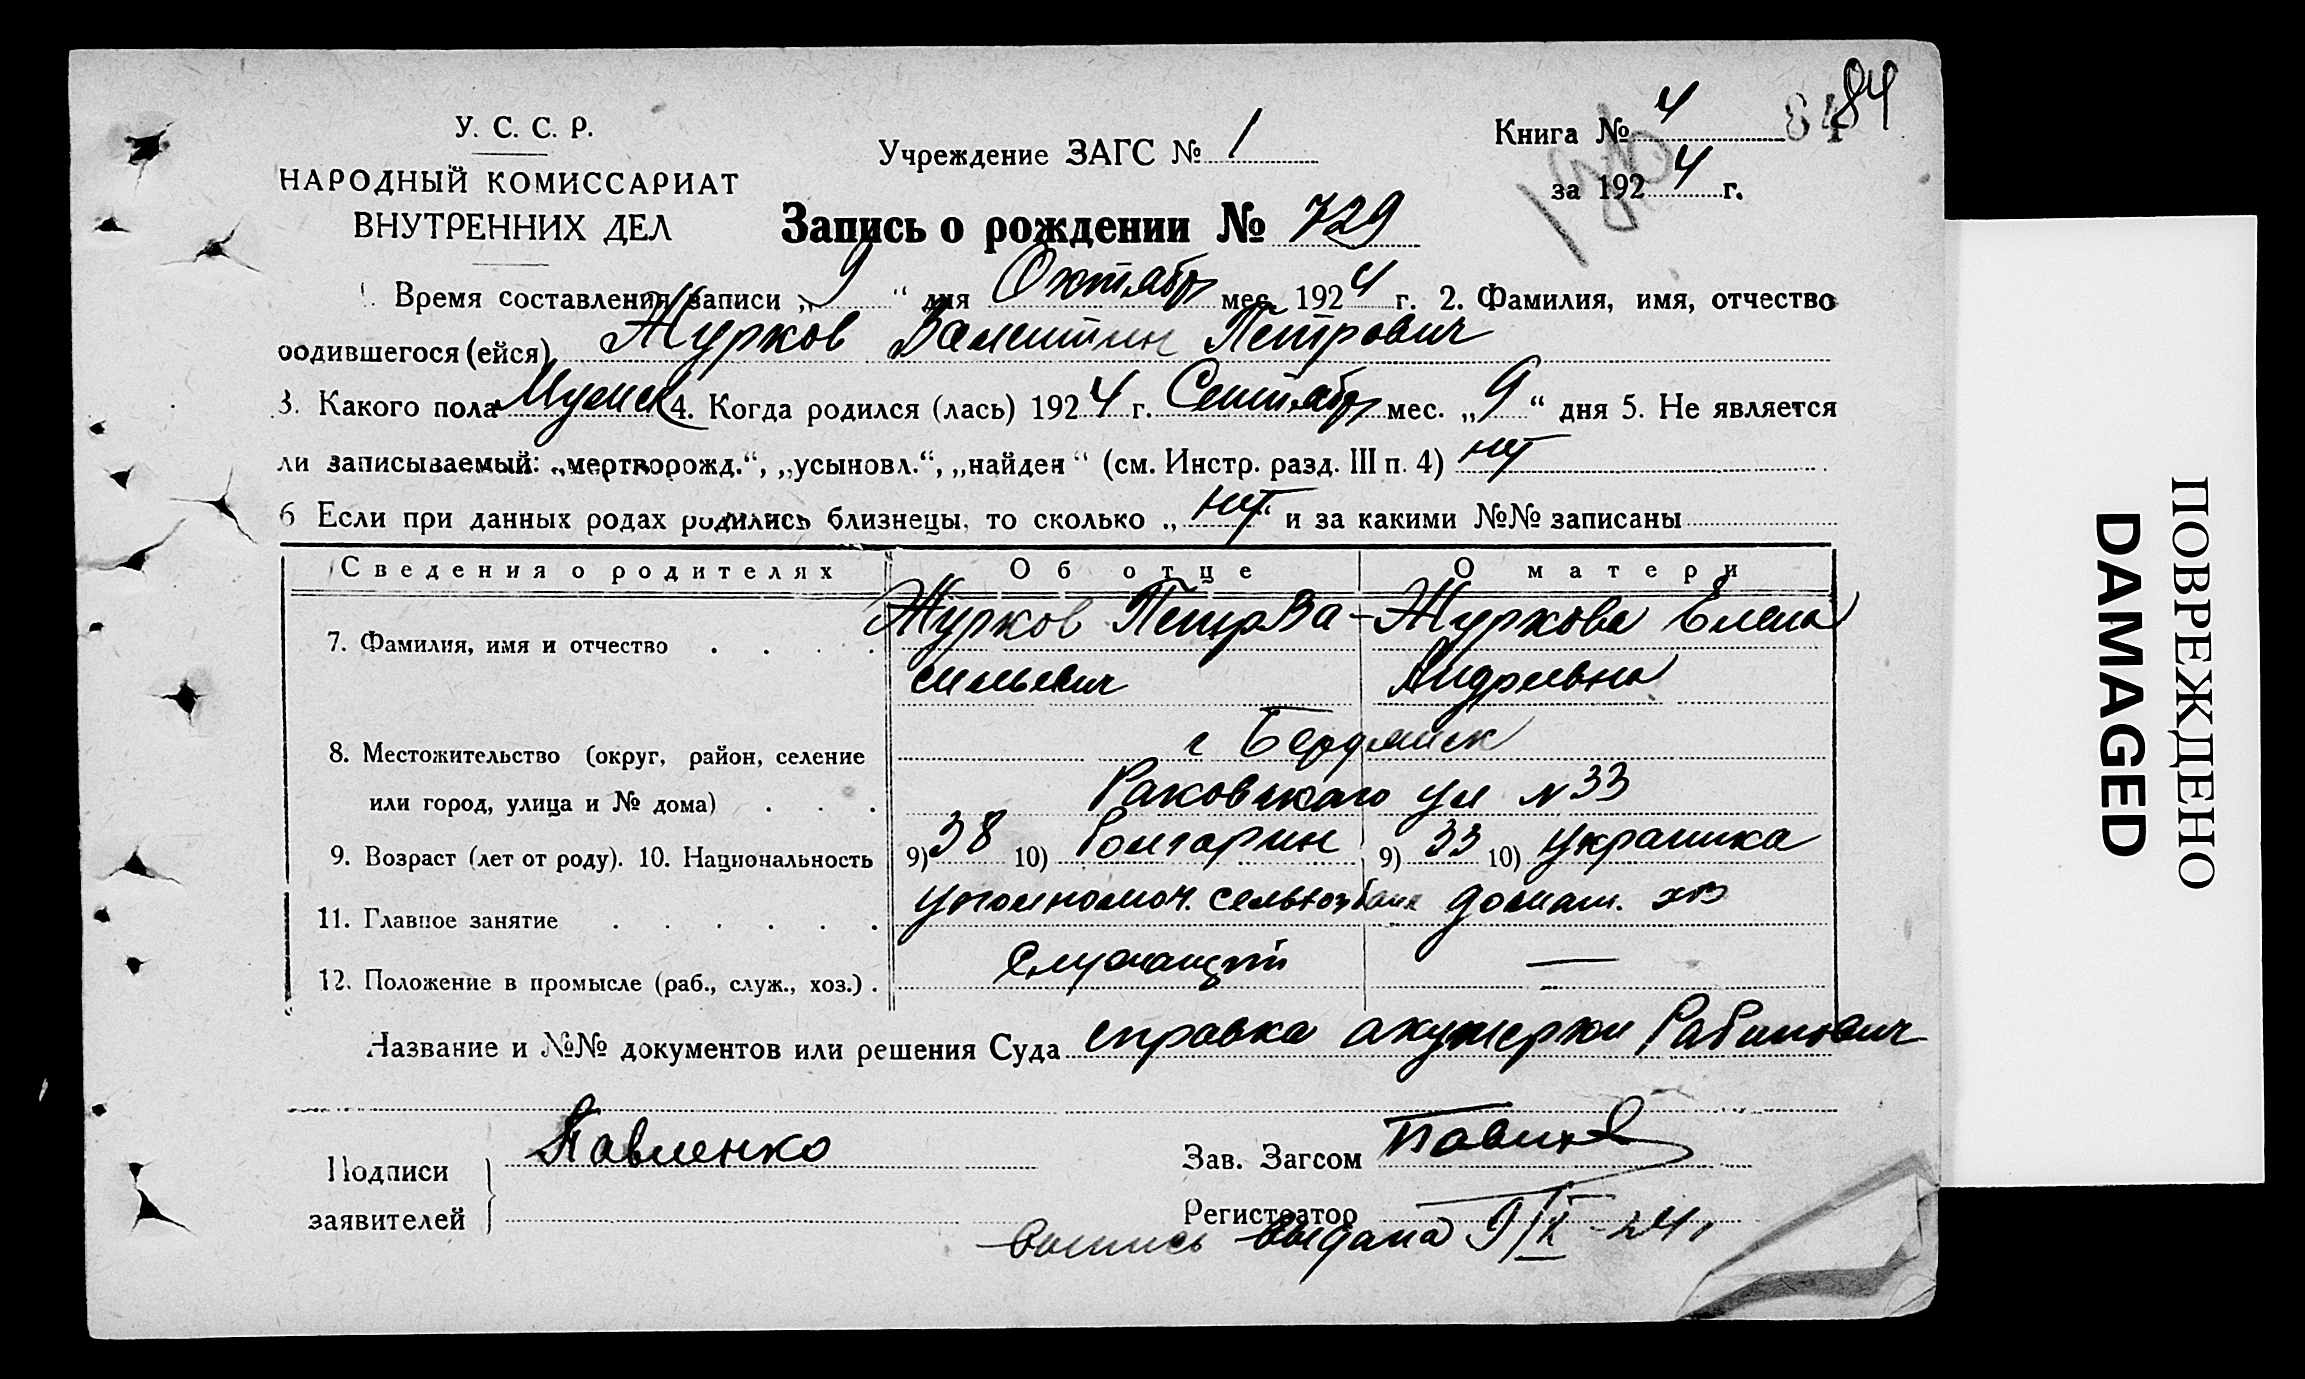 84
84
У. С. С. Р.
НАРОДНЫЙ КОМИССАРИАТ
ВНУТРЕННИХ ДЕЛ
Учреждение ЗАГС № 1
Книга № 4
за 1924 г.
Запись о рождении № 729
1. Время составления записи „9“ дня Октябр мес. 1924 г. 2. Фамилия, имя, отчество
родившегося (ейся) Журков Валентин Петрович
3. Какого пола Мужск 4. Когда родился (лась) 1924 г. Сентябр мес. „9“ дня 5. Не является
ли записываемый: „мертворожд.“, „усыновл.“, „найден“ (см. Инстр. разд. III п. 4) нет
6 Если при данных родах родились близнецы, то сколько „нет“ и за какими №№ записаны
Сведения о родителях Об отце О матери
7. Фамилия, имя и отчество . . . . Журков Петр Ва- Журкова Елена
сильевич Андреевна
г Бердянск
8. Местожительство (округ, район, селение
или город, улица и № дома) . . . Раковскаго ул N 33
9. Возраст (лет от роду). 10. Национальность 9) 38 10) Болгарин 9) 33 10) украинка
11. Главное занятие . . . . . . уполномоч. сельхозбанк домаш. хоз
12. Положение в промысле (раб., служ., хоз.) . Служащий —
Название и №№ документов или решения Суда справка акушерки Рабинович
Подписи
заявителей
Павленко
Зав. Загсом
Регистратор
выпись выдана 9/X - 24
ПОВРЕЖДЕНО
DAMAGED